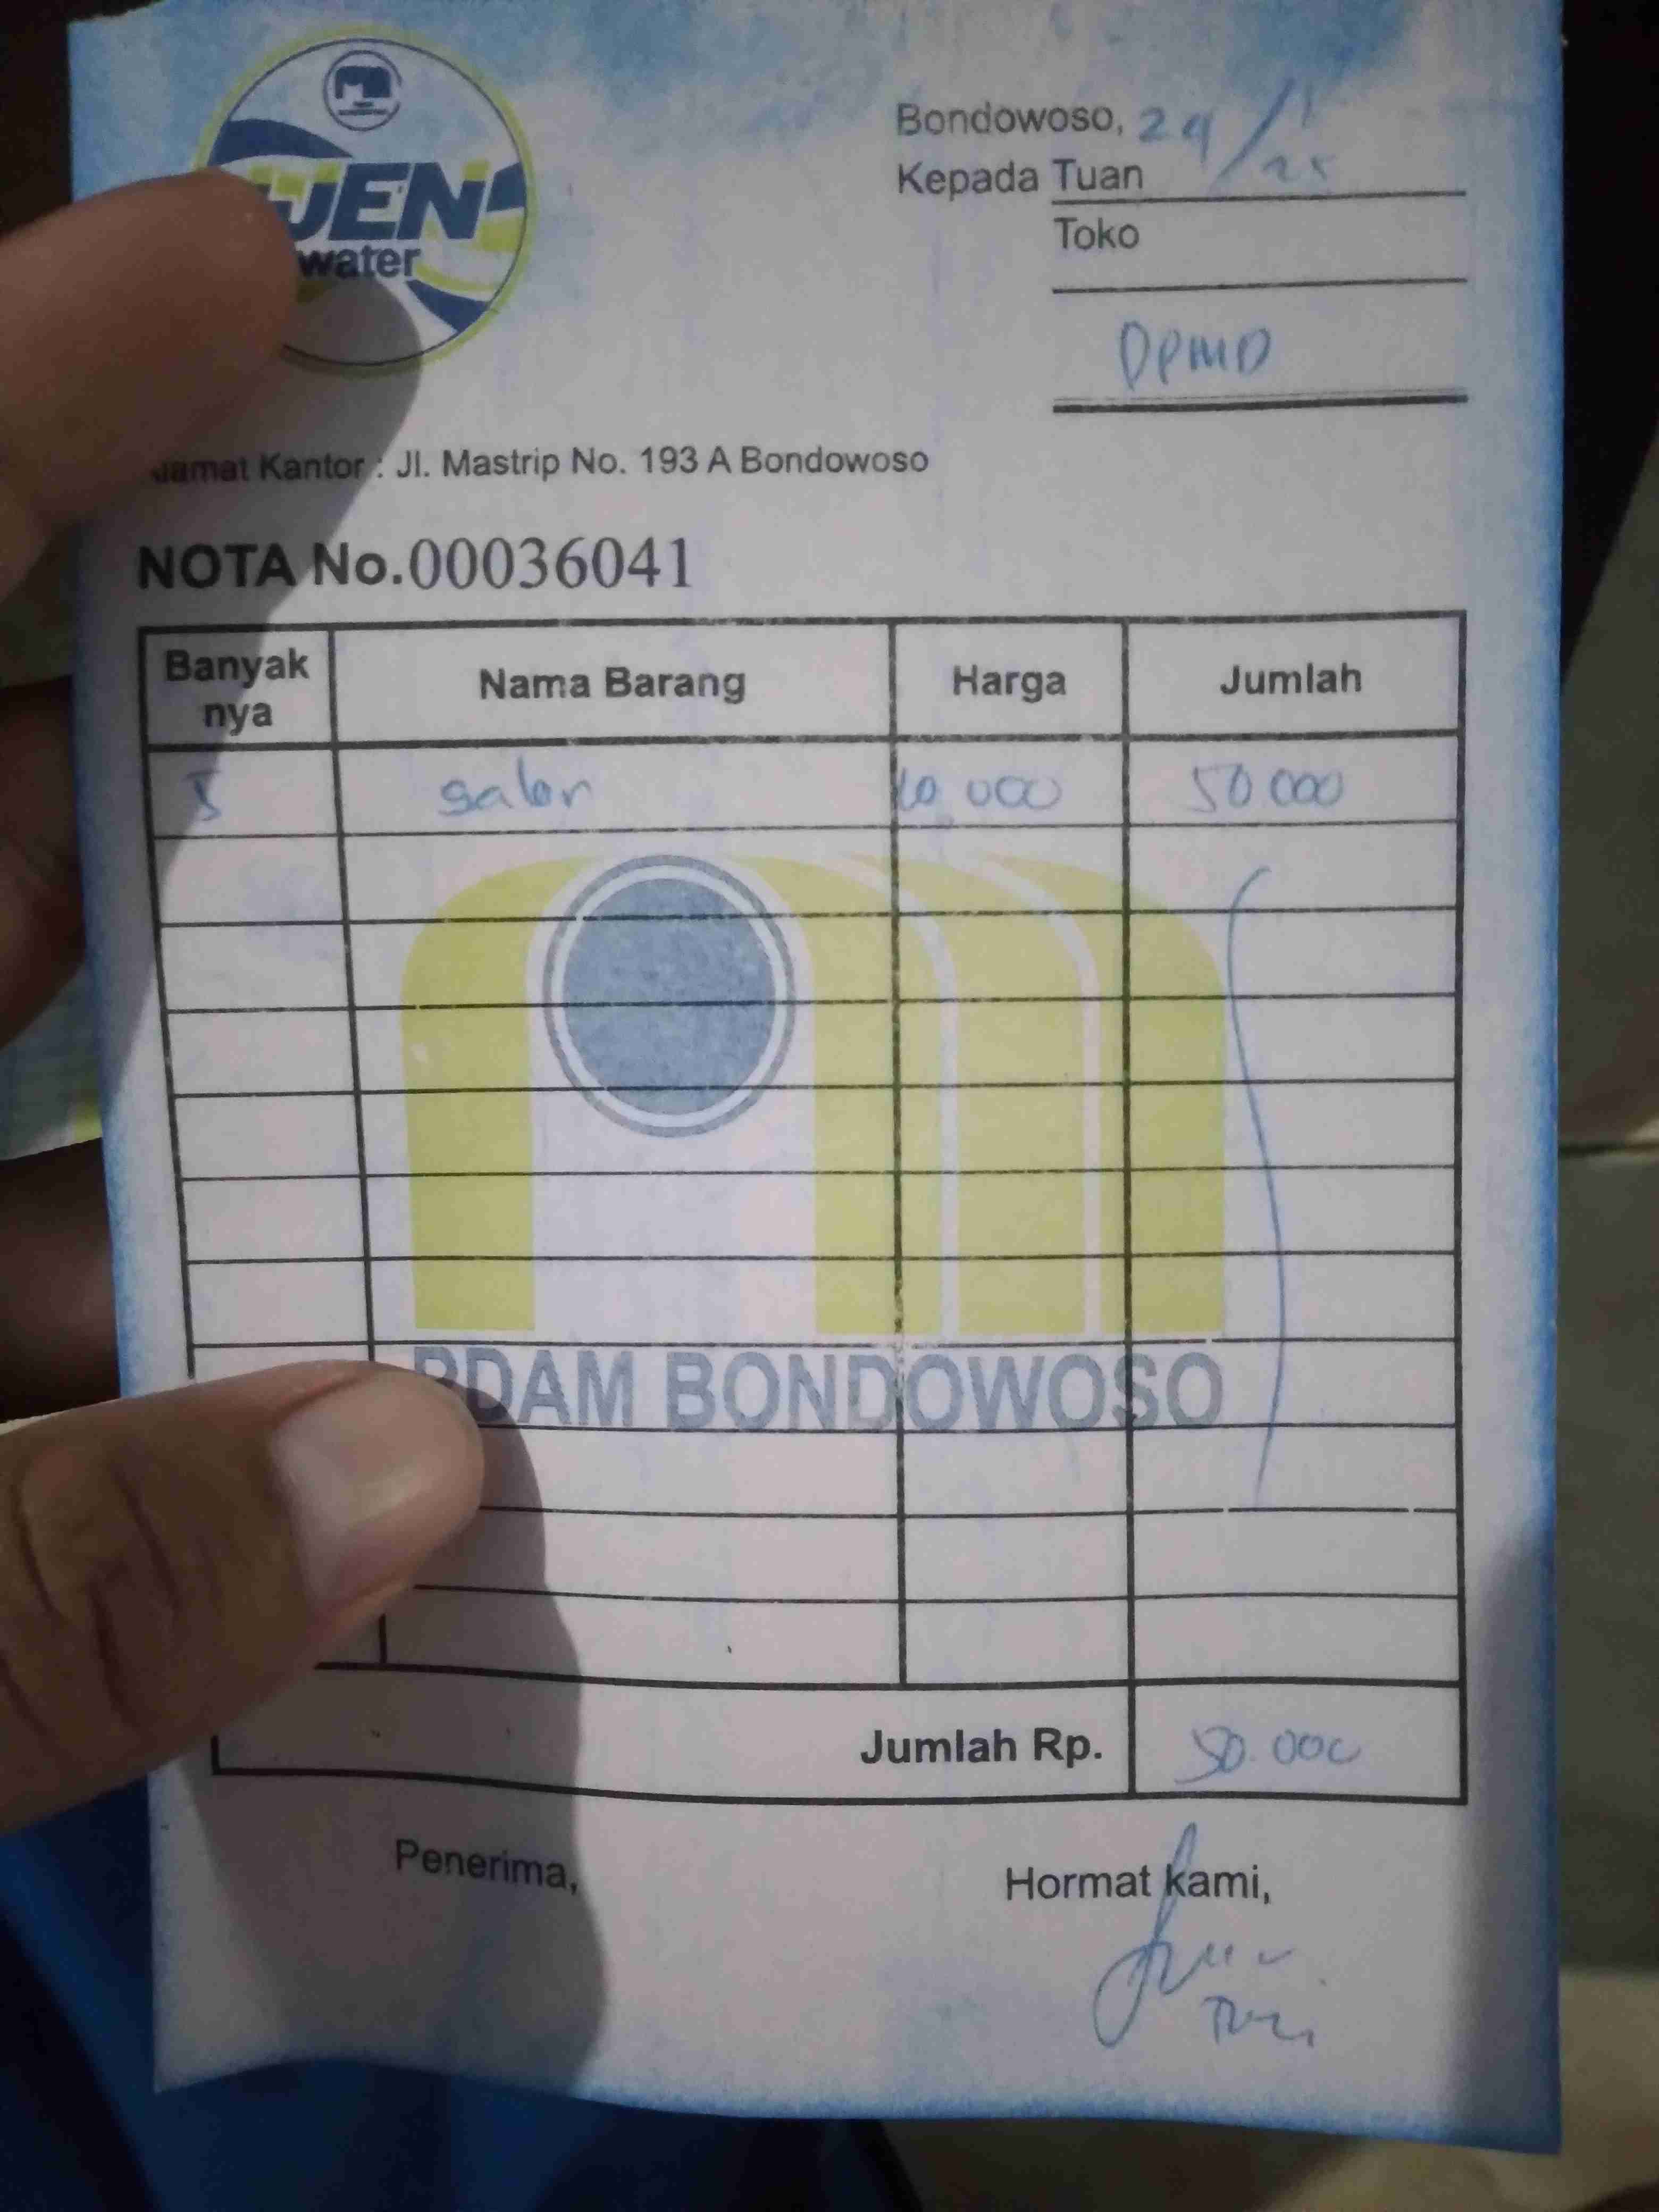 IJEN
water
Bondowoso, 24/1
25
Kepada Tuan
Toko
DPMD
Alamat Kantor : Jl. Mastrip No. 193 A Bondowoso
NOTA No.00036041
Banyak nya Nama Barang Harga Jumlah
5 galon 10.000 50 000
PDAM BONDOWOSO
Jumlah Rp. 50.000
Penerima, Hormat kami,